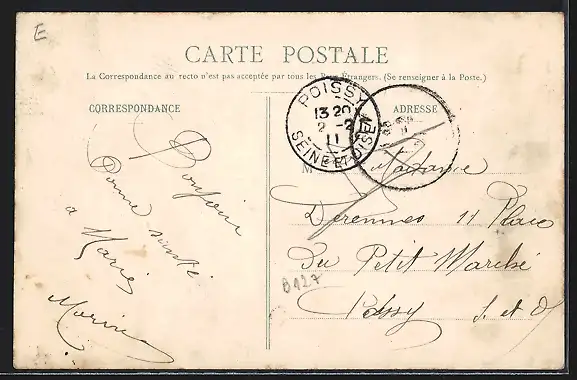 E
CARTE POSTALE
La Correspondance au recto n'est pas acceptée par tous les Pays Étrangers. (Se renseigner à la Poste.)
CORRESPONDANCE
ADRESSE
POISSY
13 20
2 -2
11
SEINE-ET-OISE
Bonjour
Bonne santé
a Marie
M
Madame
Derennes 11 Place
Du Petit Marché
Poissy S. et O.
B127